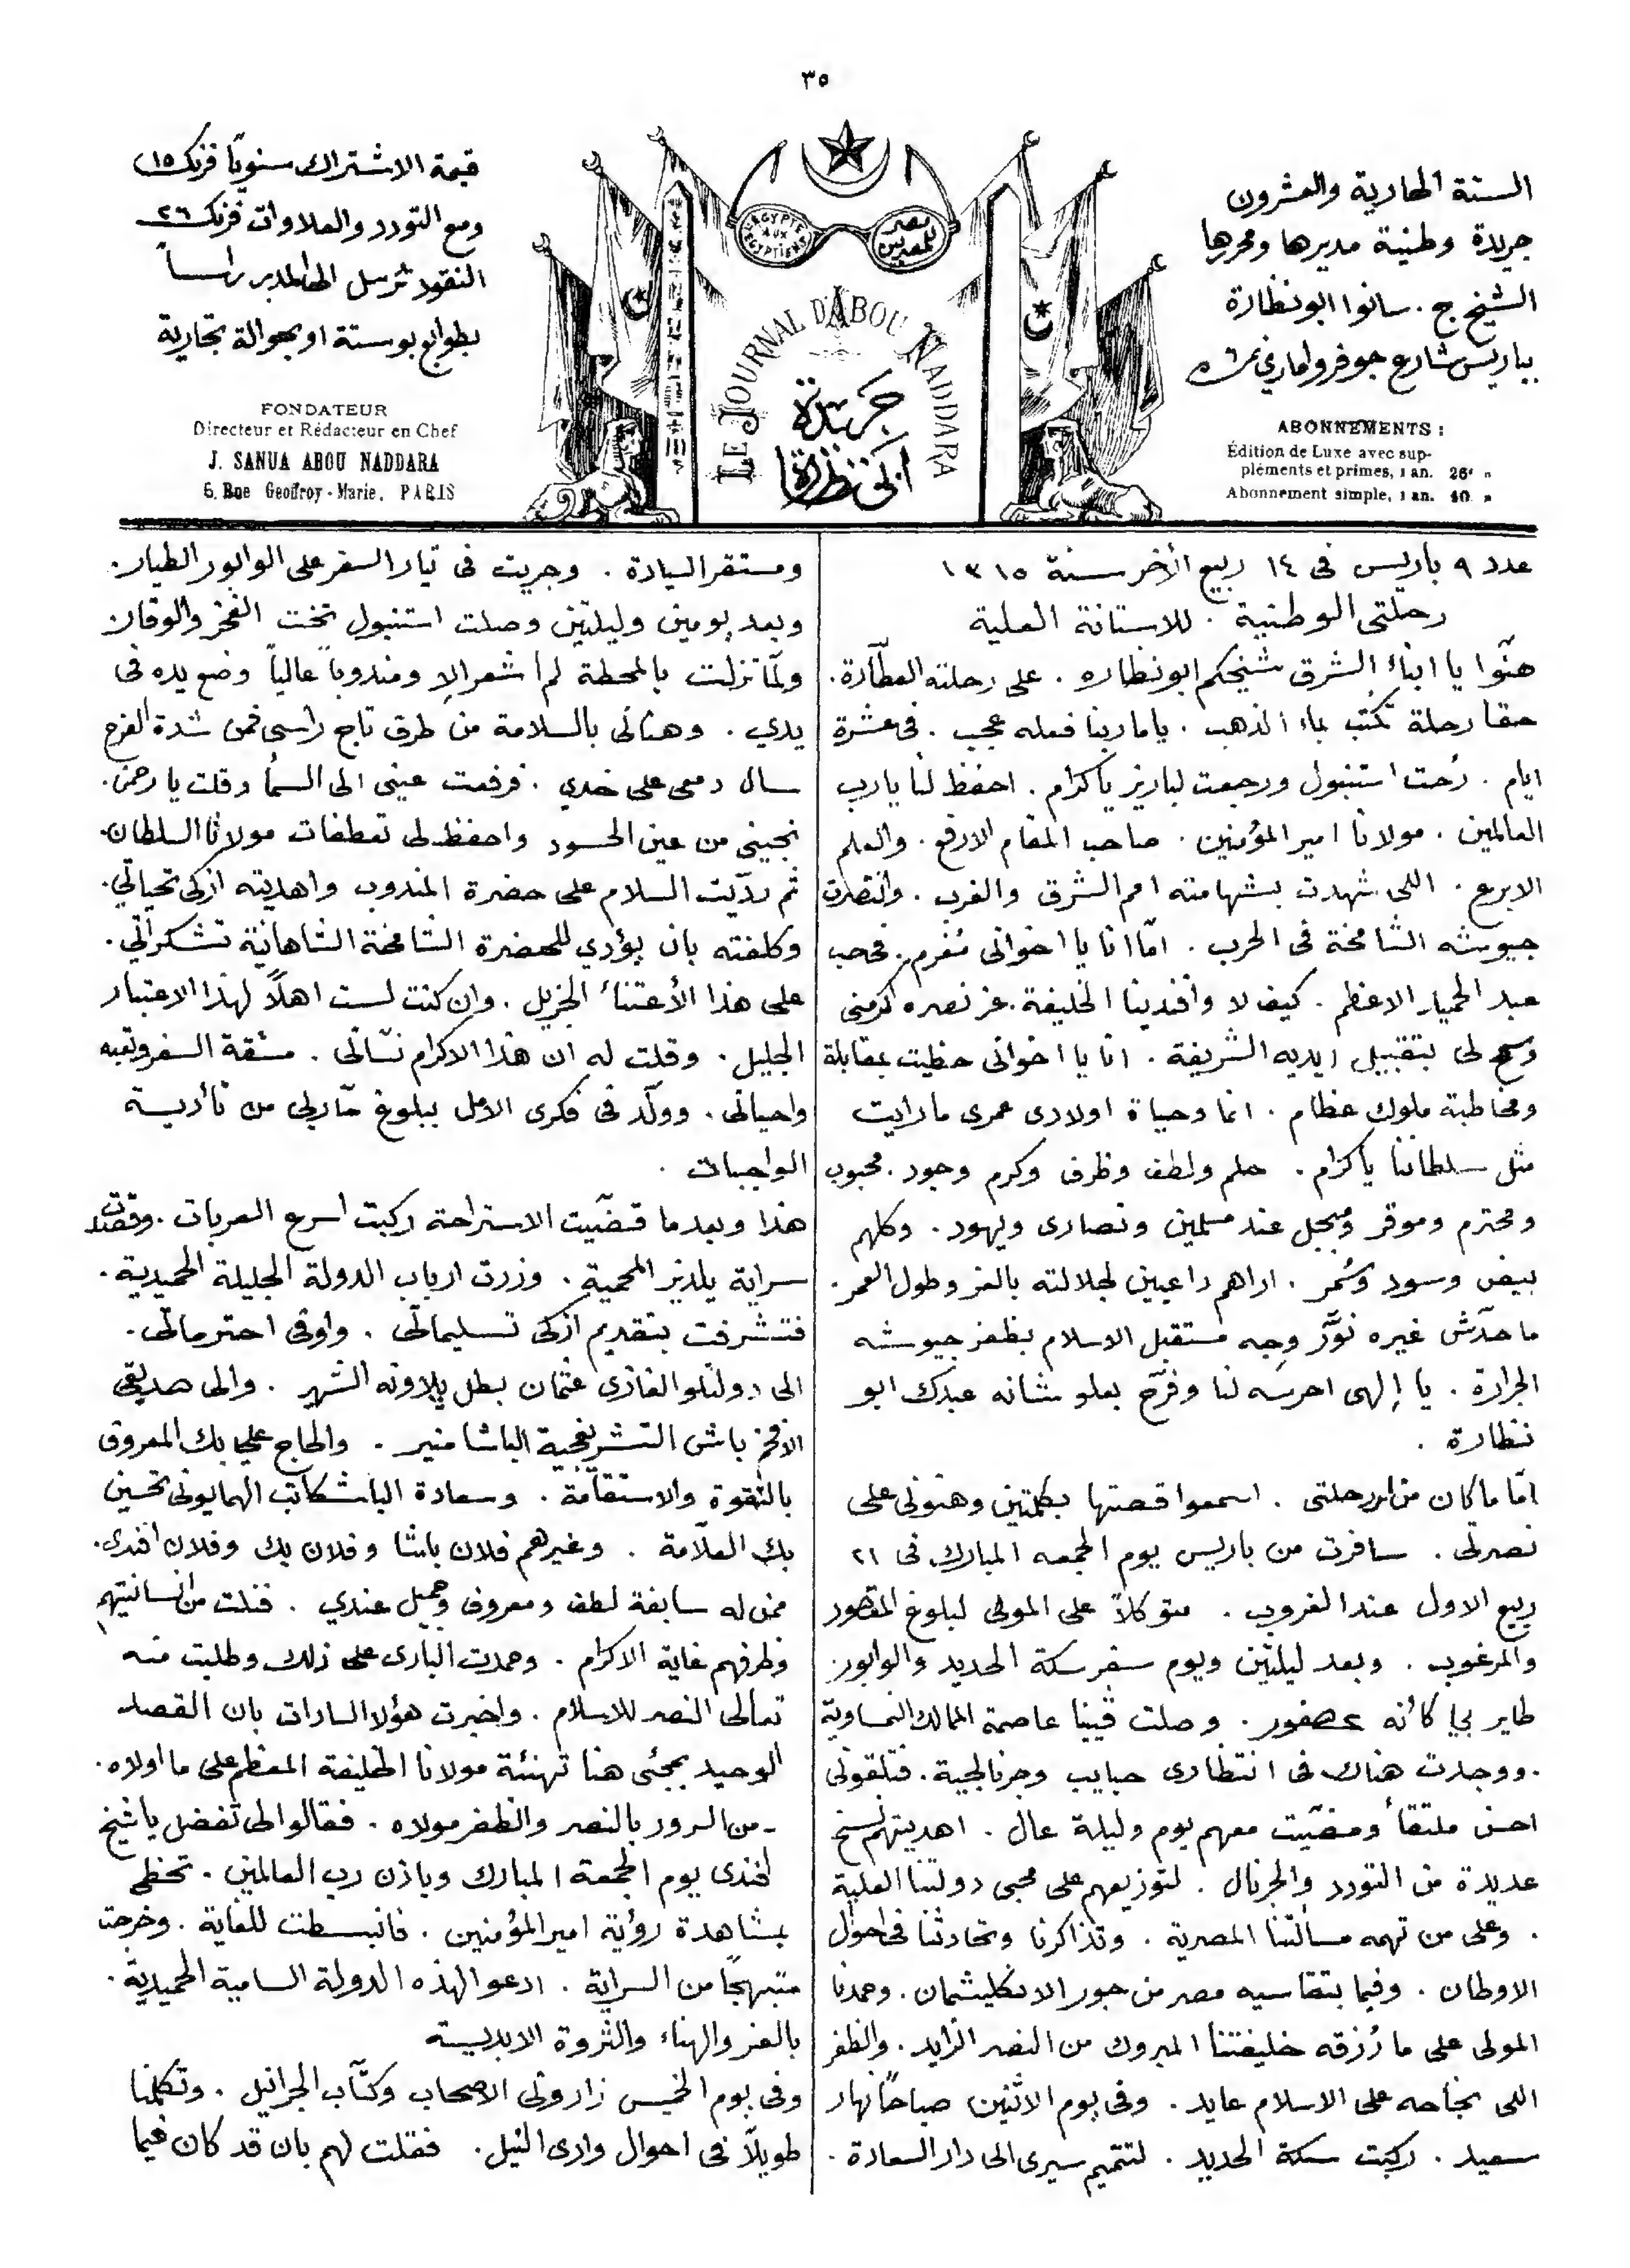 ٣٥
السنة الحادية والعشرون
جريدة وطنية مديرها ومحررها
الشيخ ج. سانوا ابو نظارة
بباريس شارع جوفروا ماري نمرة ٦
ABONNEMENTS :
Édition de Luxe avec sup-
pléments et primes, 1 an. 26f "
Abonnement simple, 1 an. 10 "
ÉGYPTE AUX ÉGYPTIENS
مصر للمصريين
LE JOURNAL D'ABOU NADDARA
جريدة
ابي نظارة
قيمة الاشتراك سنويًا فرنك ١٥
ومع التودد والعلاوات فرنك ٢٦
النقود ترسل الى المدير راساً
بطوابع بوستة او بحوالة تجارية
FONDATEUR
Directeur et Rédacteur en Chef
J. SANUA ABOU NADDARA
6, Rue Geoffroy-Marie, PARIS
عدد ٩ باريس فى ١٤ ربيع الأخر سنة ١٣١٥
رحلتى الوطنية . للاستانة العلية
هنّوا يا ابناء الشرق شيخكم ابو نظاره . على رحلته العطّارة .
حقا رحلة تكتب بماء الذهب . ياما ربنا فعله عجب . فى عشرة
ايام . رُحت استنبول ورجعت لباريز يا كرام . احفظ لنا يا رب
العالمين . مولانا امير المؤمنين . صاحب المقام الارفع . والعلم
الابرع . اللى شهدت بشهامته امم الشرق والغرب . وانتصرت
جيوشه الشامخة فى الحرب . امّا انا يا اخوانى مُغرم بمحب
عبد الحميد الاعظم . كيف لا وافندينا الخليفة . عز نصره اكرمنى
وسمح لى بتقبيل ايديه الشريفة . انا يا اخوانى حظيت بمقابلة
ومخاطبة ملوك عظام . انما وحياة اولادى عمرى ما رايت
مثل سلطاننا يا كرام . حلم ولطف وظرف وكرم وجود . محبوب
ومحترم وموقر ومبجل عند مسلمين ونصارى ويهود . وكلهم
بيض وسود وسُمر . اراهم داعيين لجلالته بالعز وطول العمر .
ما حدّش غيره نوَّر وجه مستقبل الاسلام بظفر جيوشه
الجرارة . يا إلهى احرسه لنا وفرّح بعلو شانه عبدك ابو
نظارة .
امّا ما كان من امر رحلتى . اسمعوا قصتها بكلمتين وهنونى على
نصرتى . سافرت من باريس يوم الجمعه المبارك فى ٢١
ربيع الاول عند الغروب . متوكلاً على المولى لبلوغ المقصود
والمرغوب . وبعد ليلتين ويوم سفر سكة الحديد والوابور
طاير بي كأنه عصفور . وصلت ڤيينا عاصمة الممالك النمساوية
. ووجدت هناك فى انتظارى حبايب وجرنالجية . فتلقونى
احسن ملتقا ومضّيت معهم يوم وليلة عال . اهديتهم نسخ
عديدة من التودد والجرنال . لتوزيعهم على محبى دولتنا العلية
. وعلى من تهمه مسألتنا المصرية . وتذاكرنا وتحادثنا فى احوال
الاوطان . وفيما بتقاسيه مصر من جور الانكليشمان . وحمدنا
المولى على ما رُزقه خليفتنا المبروك من النصر الزايد . والظفر
اللى نجاحه على الاسلام عايد . وفى يوم الاثنين صباحًا نهار
سعيد . ركبت سكة الحديد . لتتميم سيرى الى دار السعادة .
ومستقر السيادة . وجريت فى تيار السفر على الوابور الطيار .
وبعد يومين وليلتين وصلت استنبول تخت الفخر والوقار
ولمّا نزلت بالمحطة لم اشعر الا ومندوباً عالياً وضع يده فى
يدي . وهنانى بالسلامة من طرف تاج راسى فمن شدة الفرح
سال دمعى على خدي . فرفعت عينى الى السما وقلت يا رحمن .
نجينى من عين الحسود واحفظ لى تعطفات مولانا السلطان
ثم ردّيت السلام على حضرة المندوب واهديته ازكى تحياتي .
وكلفته بان يؤدي للحضرة الشامخة الشاهانية تشكراتي .
على هذا الأعتناء الجزيل . وان كنت لست اهلاً لهذا الاعتبار
الجليل . وقلت له ان هذا الاكرام نسّانى . مشقة السفر وتعبه
واحيانى . وولّد فى فكرى الامل ببلوغ مآربى من تأدية
الواجبات .
هذا وبعد ما قضّيت الاستراحة ركبت اسرع العربات . وقصدت
سراية يلدز المحمية . وزرت ارباب الدولة الجليلة الحميدية .
فتشرفت بتقديم ازكى تسليماتى . واوفى احترماتى .
الى دولتلو الغازى عثمان بطل پلاونه الشهير . والى صديقى
الافخم باش التشريفجية الباشا منير . والحاج علي بك المعروف
بالتقوة والاستقامة . وسعادة الباشكاتب الهمايونى تحسين
بك العلاّمة . وغيرهم فلان باشا وفلان بك وفلان افندى .
ممن له سابقة لطف ومعروف وجميل عندي . فنلت من انسانيتهم
وظرفهم غاية الاكرام . وحمدت البارى على ذلك وطلبت منه
تعالى النصر للاسلام . واخبرت هؤلا السادات بان القصد
الوحيد بمجئى هنا تهنئة مولانا الخليفة المعظم على ما اولاه .
من السرور بالنصر والظفر مولاه . فقالوا لى تفضل يا شيخ
لغندى يوم الجمعة المبارك وباذن رب العالمين . تحظى
بمشاهدة رؤية امير المؤمنين . فانبسطت للغاية . وخرجت
مبتهجًا من السراية . ادعو لهذه الدولة السامية الحميدية .
بالعز والهناء والثروة الابدية
وفى يوم الخميس زارونى الاصحاب وكتّاب الجرانيل . وتكلمنا
طويلاً فى احوال وادى النيل . فقلت لهم بان قد كان فيما